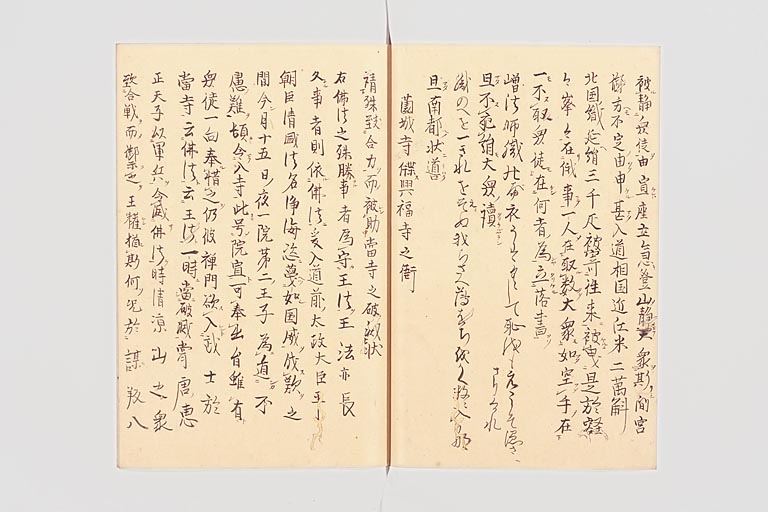 被静衆徒由宣座主急登山静大衆斯間宮
御方不定由申甚入道相国近江米二萬斛
北国織延絹三千疋被寄往来被曳是於谷
々峯々在俄事一人在取数大衆如空手在
一不取衆徒在何者為立落書
山法師織延衣うすくして恥は
旦不宛絹大衆讀
織のへを一きれもえぬ我らさへ薄はちをかく数に入哉
旦南都状遣
薗城寺牒興福寺之衙
請殊致合力而被助當寺之破却状
右佛法之殊勝事者為守王法王法亦長
久事者則依佛法爰入道前太政大臣平
朝臣清盛法名浄海恣蔑如国威成歎之
間今月十五日夜一院第二王子為遁不
慮難頓令入寺此号院宣可奉出自雖有
衆徒一向奉惜之仍彼禅門欲入武士於
當寺云佛法云王法一時當破滅霄唐恵
正天子以軍兵令滅佛法時清凉山之衆
致合戦而禦之王權猶斯何况於謀叛八